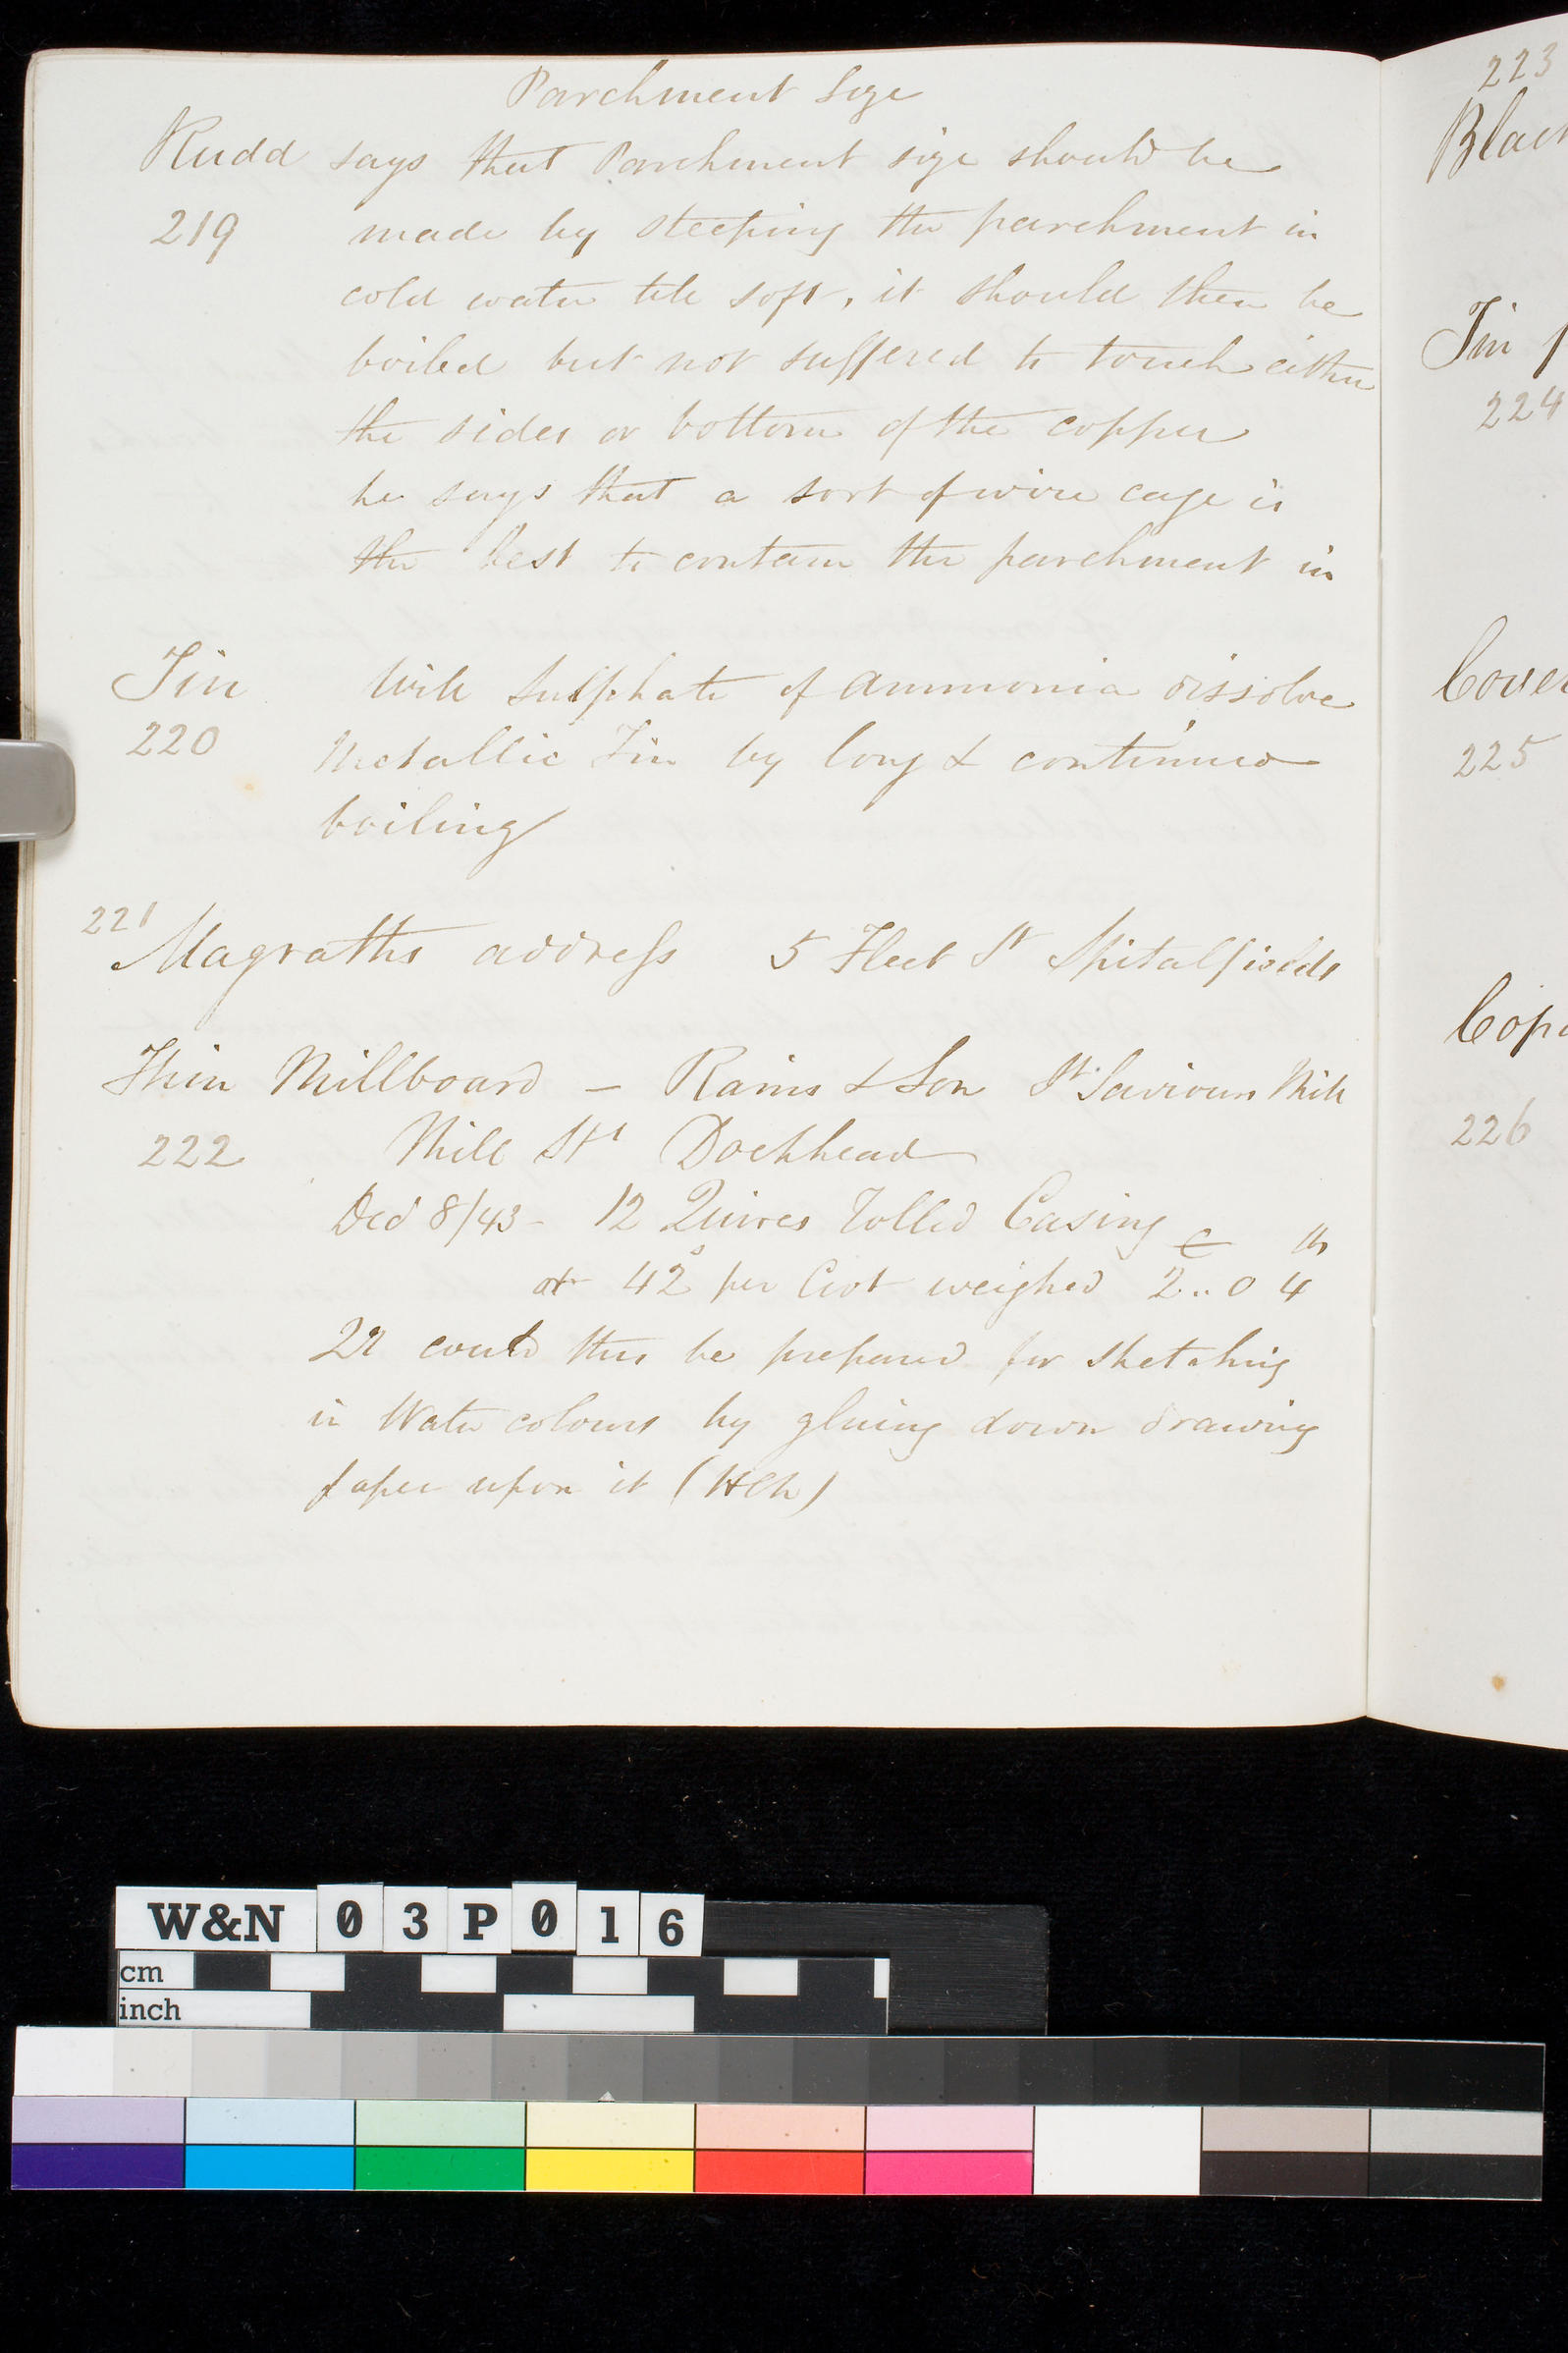 Parchment Size
Rudd says that Parchment size should be
219 made by steeping the parchment in
cold water till soft, it should then be
boiled but not suffered to touch either
the sides or bottom of the copper
he says that a sort of wire cage is
the best to contain the parchment in
Tin Will Sulphate of Ammonia dissolve
220 Metallic Tin by long & continued
boiling
221
Magraths address 5 Fleet St Spitalfields
Thin Millboard – Rains & Son St Saviours Mill
222 Mill St Dockhead
Decr 8/43 – 12 Quires Rolled Casing
C lb
at 42s per Cwt weighed 2..0 4
Qy could this be prepared for sketching
in Water colours by gluing down drawing
paper upon it (HCN)
223
Black
Tin
224
Cover
225
Copa
226
W&N 03P016
cm
inch